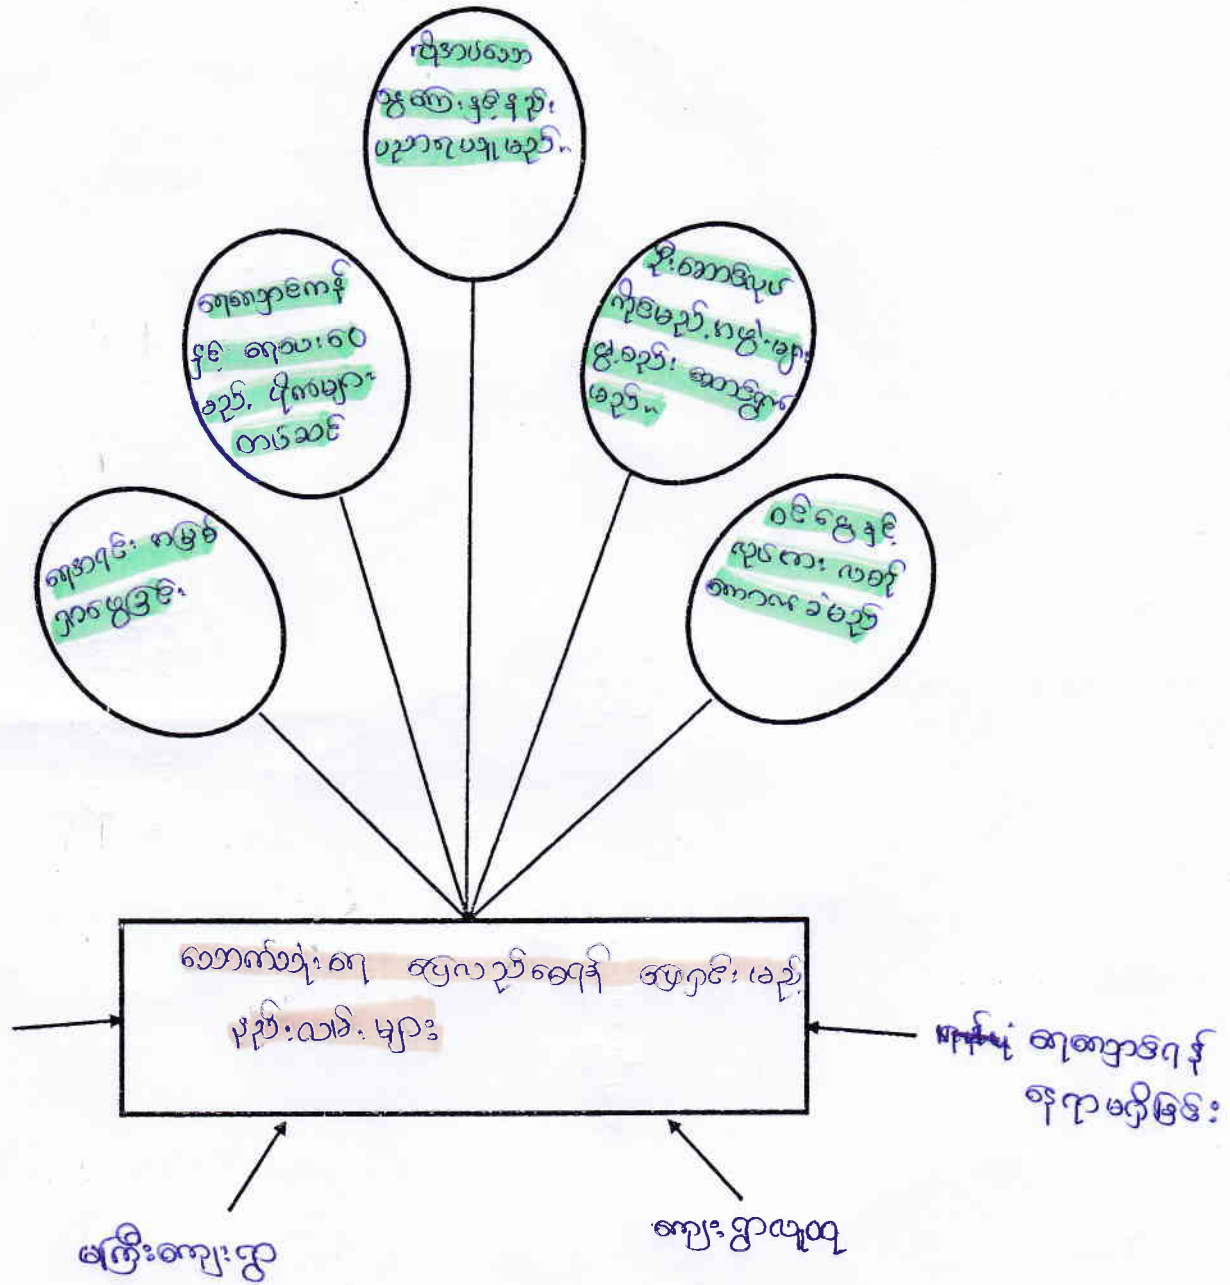 လိုအပ်သော
သွန်ကြားနှင့်နည်း
ပညာရယူမည်။
ရေလှောင်ကန်
နှင့် ရေပေးဝေ
မည့် ပိုက်များ
တပ်ဆင်
ဦးဆောင်လုပ်
ကိုင်မည့်အဖွဲ့များ
ဖွဲ့စည်း ဆောင်ရွက်
မည်။
ရေအရင်း အမြစ်
ရှာဖွေခြင်း
ဝင်ငွေနှင့်
လုပ်ကား လစဉ်
ကောက်ခံမည်
သောက်သုံးရေ ပြေလည်စေရန် ဖြေရှင်းမည့်
နည်းလမ်းများ
ရေလှောင်ရန်
နေရာမရှိခြင်း
မကြီးကျေးရွာ
ကျေးရွာလူထု